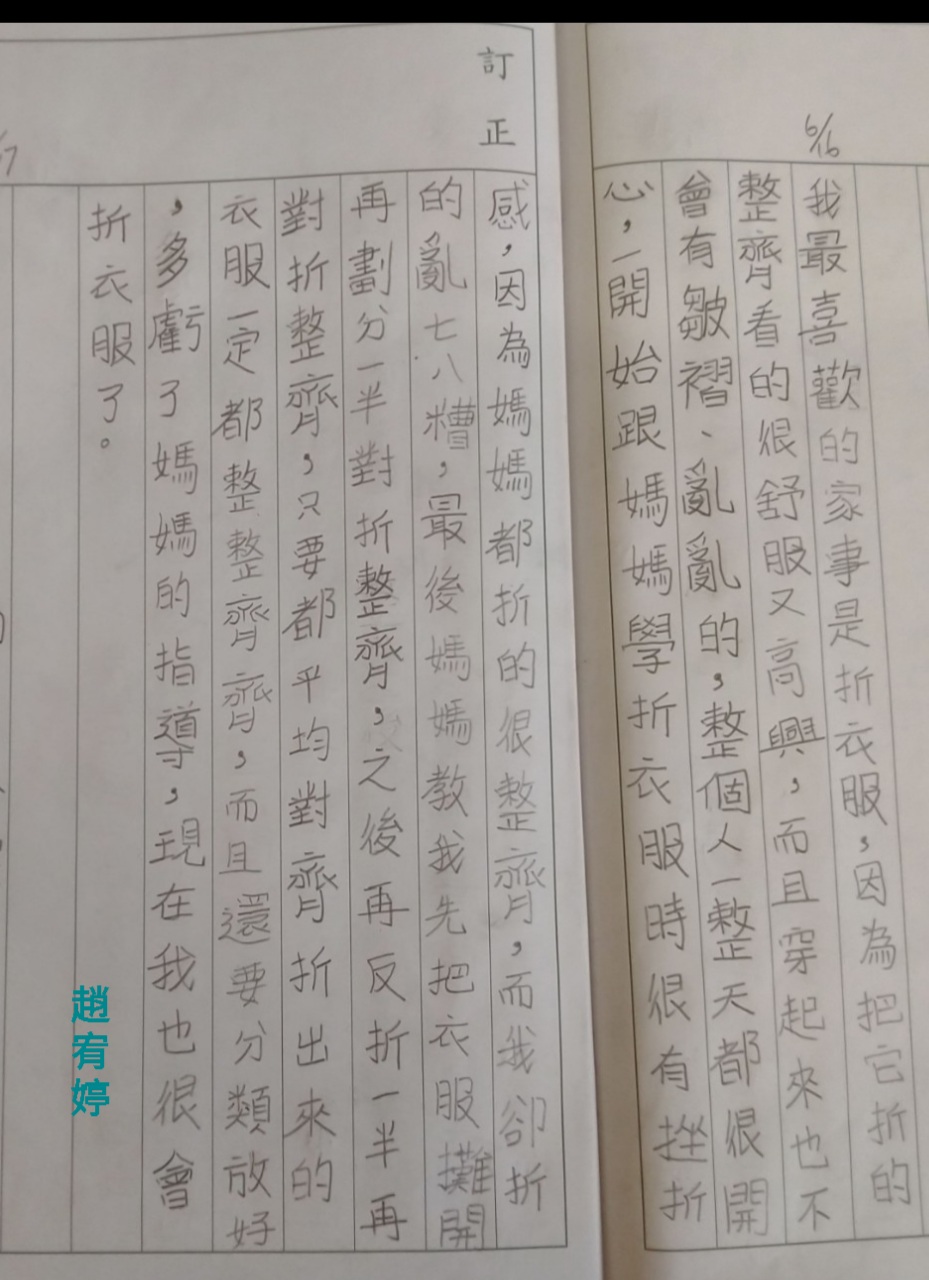 6/16
我最喜歡的家事是折衣服,因為把它折的
整齊看的很舒服又高興,而且穿起來也不
會有皺褶、亂亂的,整個人一整天都很開
心,一開始跟媽媽學折衣服時很有挫折
訂正
感,因為媽媽都折的很整齊,而我卻折
的亂七八糟,最後媽媽教我先把衣服攤開
再劃分一半對折整齊,之後再反折一半再
對折整齊,只要都平均對齊折出來的
衣服一定都整整齊齊,而且還要分類放好
,多虧了媽媽的指導,現在我也很會
折衣服了。
趙宥婷